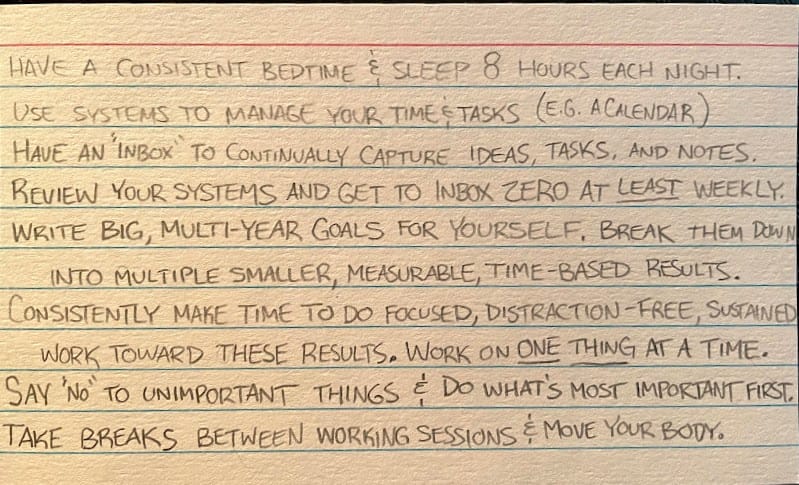 HAVE A CONSISTENT BEDTIME & SLEEP 8 HOURS EACH NIGHT.
USE SYSTEMS TO MANAGE YOUR TIME & TASKS (E.G. A CALENDAR)
HAVE AN "INBOX" TO CONTINUALLY CAPTURE IDEAS, TASKS, AND NOTES.
REVIEW YOUR SYSTEMS AND GET TO INBOX ZERO AT LEAST WEEKLY.
WRITE BIG, MULTI-YEAR GOALS FOR YOURSELF. BREAK THEM DOWN
INTO MULTIPLE SMALLER, MEASURABLE, TIME-BASED RESULTS.
CONSISTENTLY MAKE TIME TO DO FOCUSED, DISTRACTION-FREE, SUSTAINED
WORK TOWARD THESE RESULTS. WORK ON ONE THING AT A TIME.
SAY "NO" TO UNIMPORTANT THINGS & DO WHAT'S MOST IMPORTANT FIRST.
TAKE BREAKS BETWEEN WORKING SESSIONS & MOVE YOUR BODY.